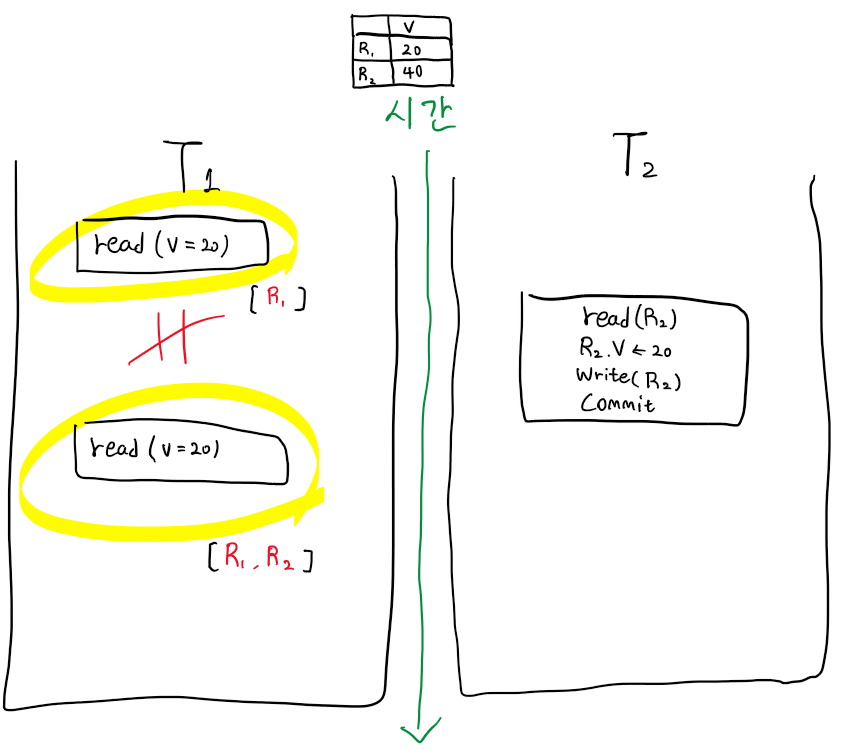 V
R₁ 20
R₂ 40
시간
T₁
read (V = 20)
[ R₁ ]
read (V = 20)
[ R₁, R₂ ]
T₂
read (R₂)
R₂.V ← 20
Write (R₂)
Commit